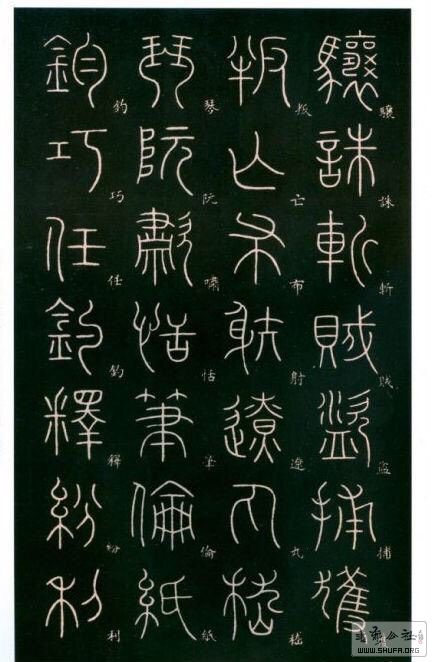 驤誅斬賊盜捕獲
驤誅斬賊盗捕
叛亡布射遼丸嵇
叛亡布射遼丸嵇
琴阮嘯恬筆倫紙
琴阮嘯恬筆倫紙
鈞巧任釣釋紛利
鈞巧任釣釋紛利
书法公社
WWW.SHUFA.ORG